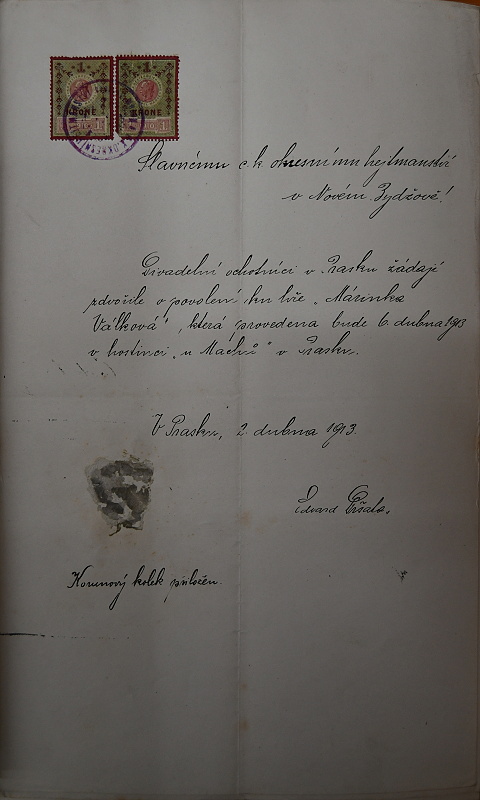 1 1
KRONE KRONE
Slavnému c. k. okresnímu hejtmanství
v Novém Bydžově!
Divadelní ochotníci v Prasku žádají
zdvořile o povolení ku hře „Márinka
Válková", která provedena bude 6. dubna 1913
v hostinci „u Machů" v Prasku.
V Prasku, 2. dubna 1913.
Edvard
Korunový kolek přiložen.